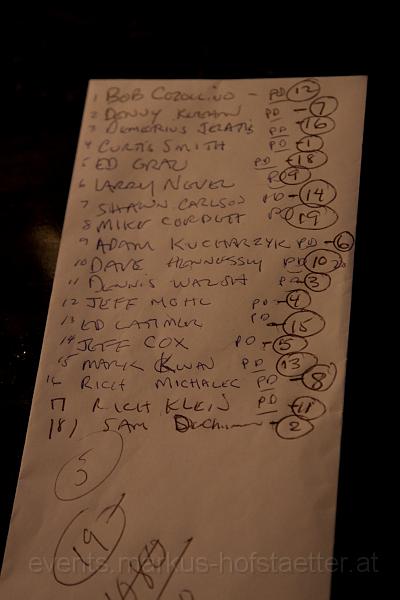 1 BOB COZOLLINO - PD 12
2 DENNY PD - 7
3 DEMETRIUS PD - 16
4 CURTIS SMITH PD - 1
5 ED GRAU PD - 18
6 LARRY NEVEL PD 9
7 SHAWN CARLSON PD - 14
8 MIKE CORBETT PD 19
9 ADAM KUCHARZYK PD - 6
10 DAVE HENNESSLY PD 10
11 DENNIS WALSH PD - 3
12 JEFF MOHL PD - 4
13 ED LATIMER PD - 15
14 JEFF COX PD - 5
15 MARK KWAN PD 13
16 RICH MICHALEC PD - 8
17 RICH KLEIN PD - 11
18) SAM - 2
5
19
events.markus-hofstaetter.at